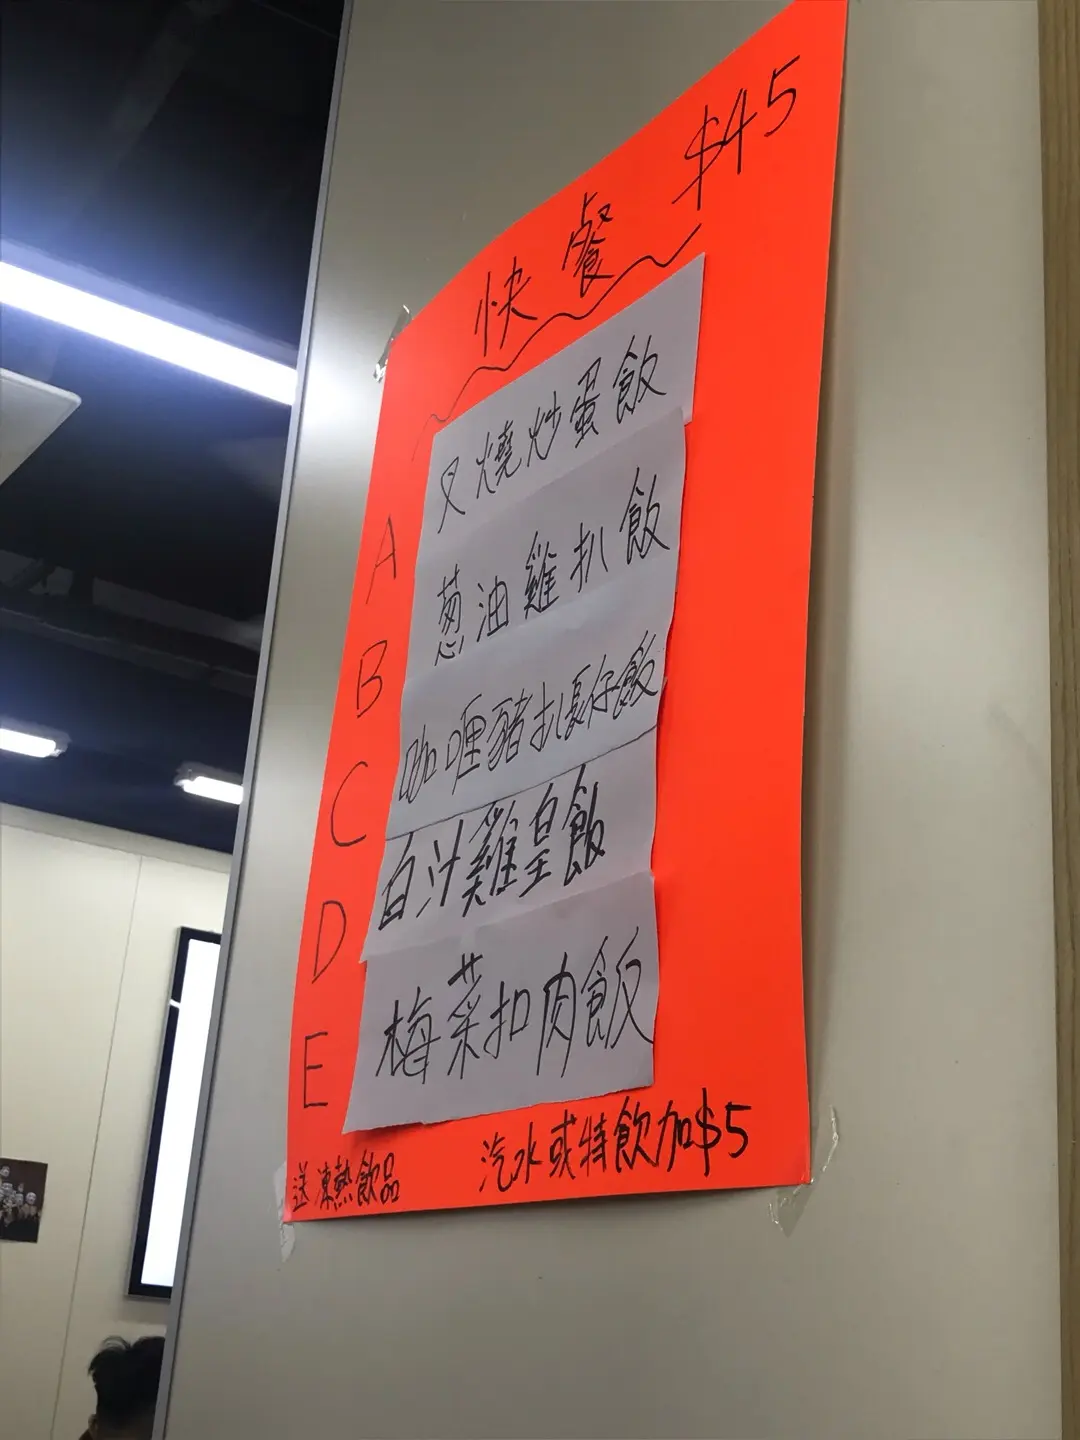 快餐 $45
A 叉燒炒蛋飯
B 葱油雞扒飯
C 咖喱豬扒長仔飯
D 白汁雞皇飯
E 梅菜扣肉飯
送凍熱飲品 汽水或特飲加$5